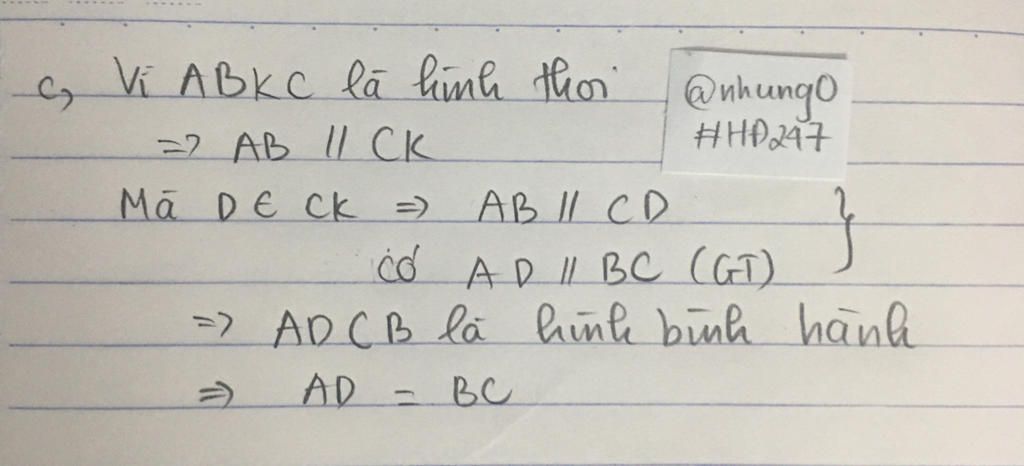 c, Vì ABKC là hình thoi
@nhung0
#HĐ247
=> AB // CK
Mà D ∈ CK => AB // CD }
có AD // BC (GT)
=> ADCB là hình bình hành
=> AD = BC